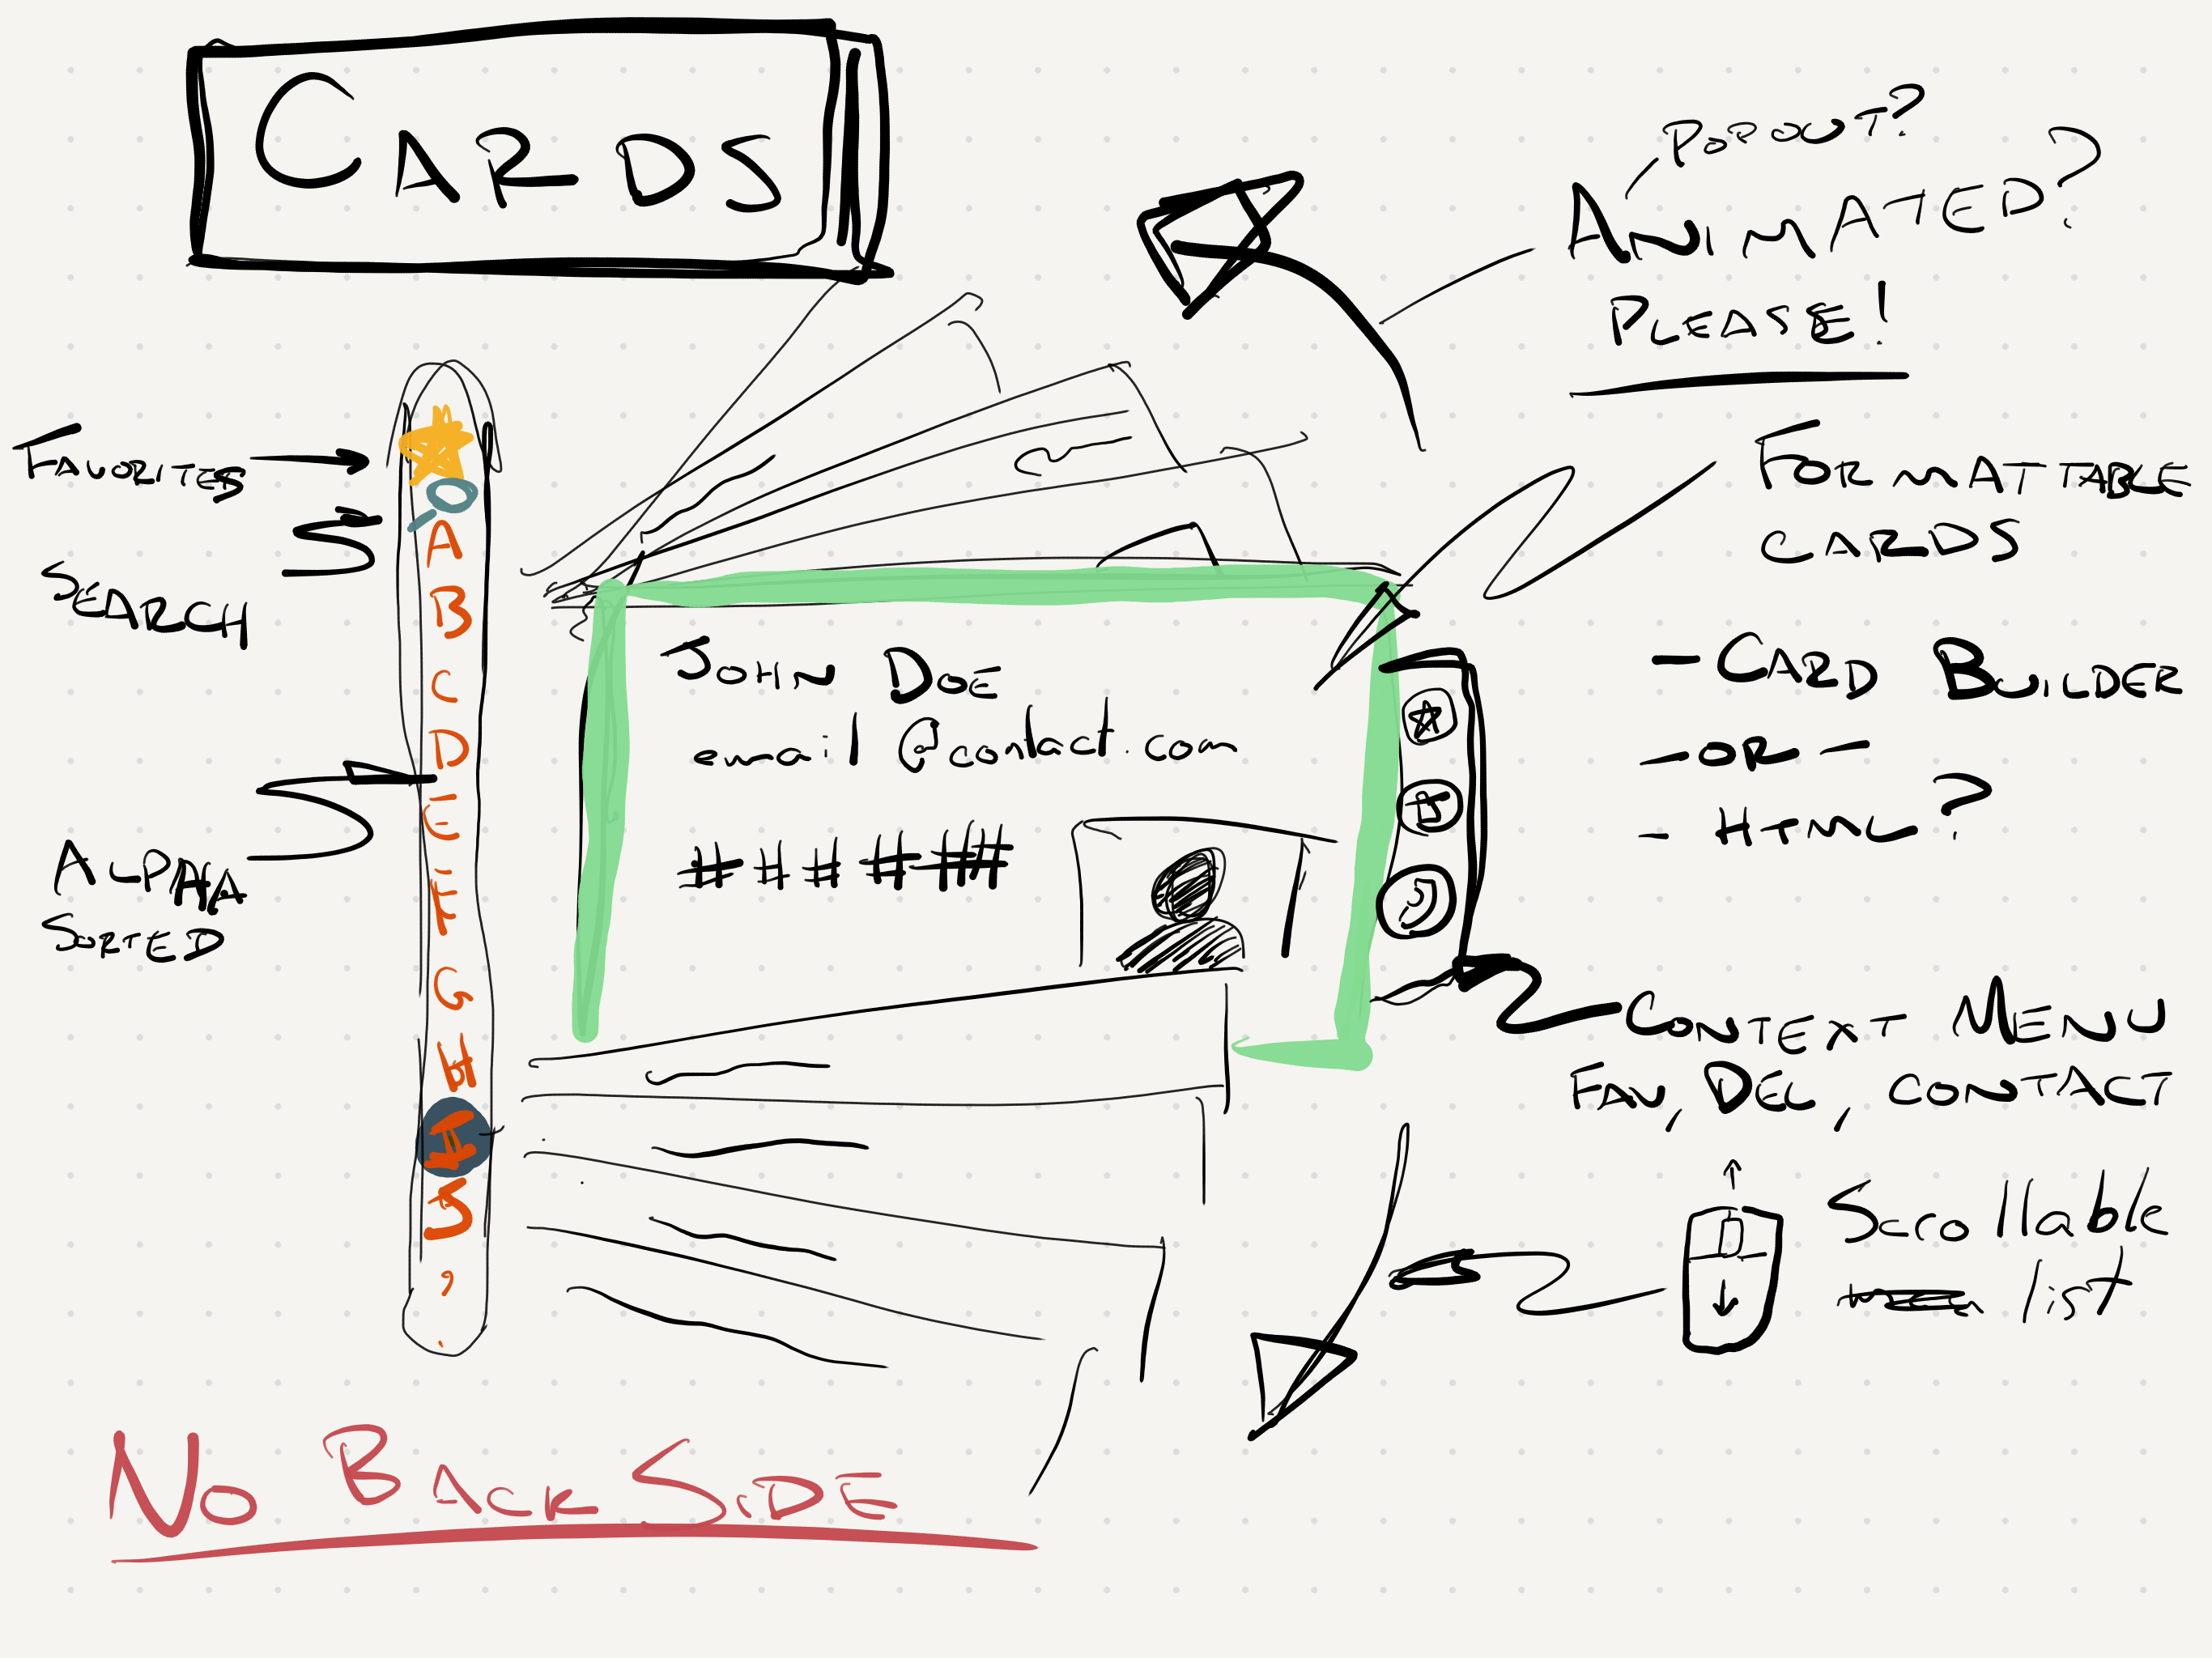 CARDS
POPOUT?
ANIMATED?
PLEASE!
FAVORITES
SEARCH
ALPHA
SORTED
A
B
C
D
E
F
G
H
I
J
JOHN DOE
email@contact.com
#######
FORMATTABLE
CARDS
- CARD BUILDER
- OR -
- HTML?
CONTEXT MENU
FAV, DEL, CONTACT
Scrollable
list
NO BACKSIDE